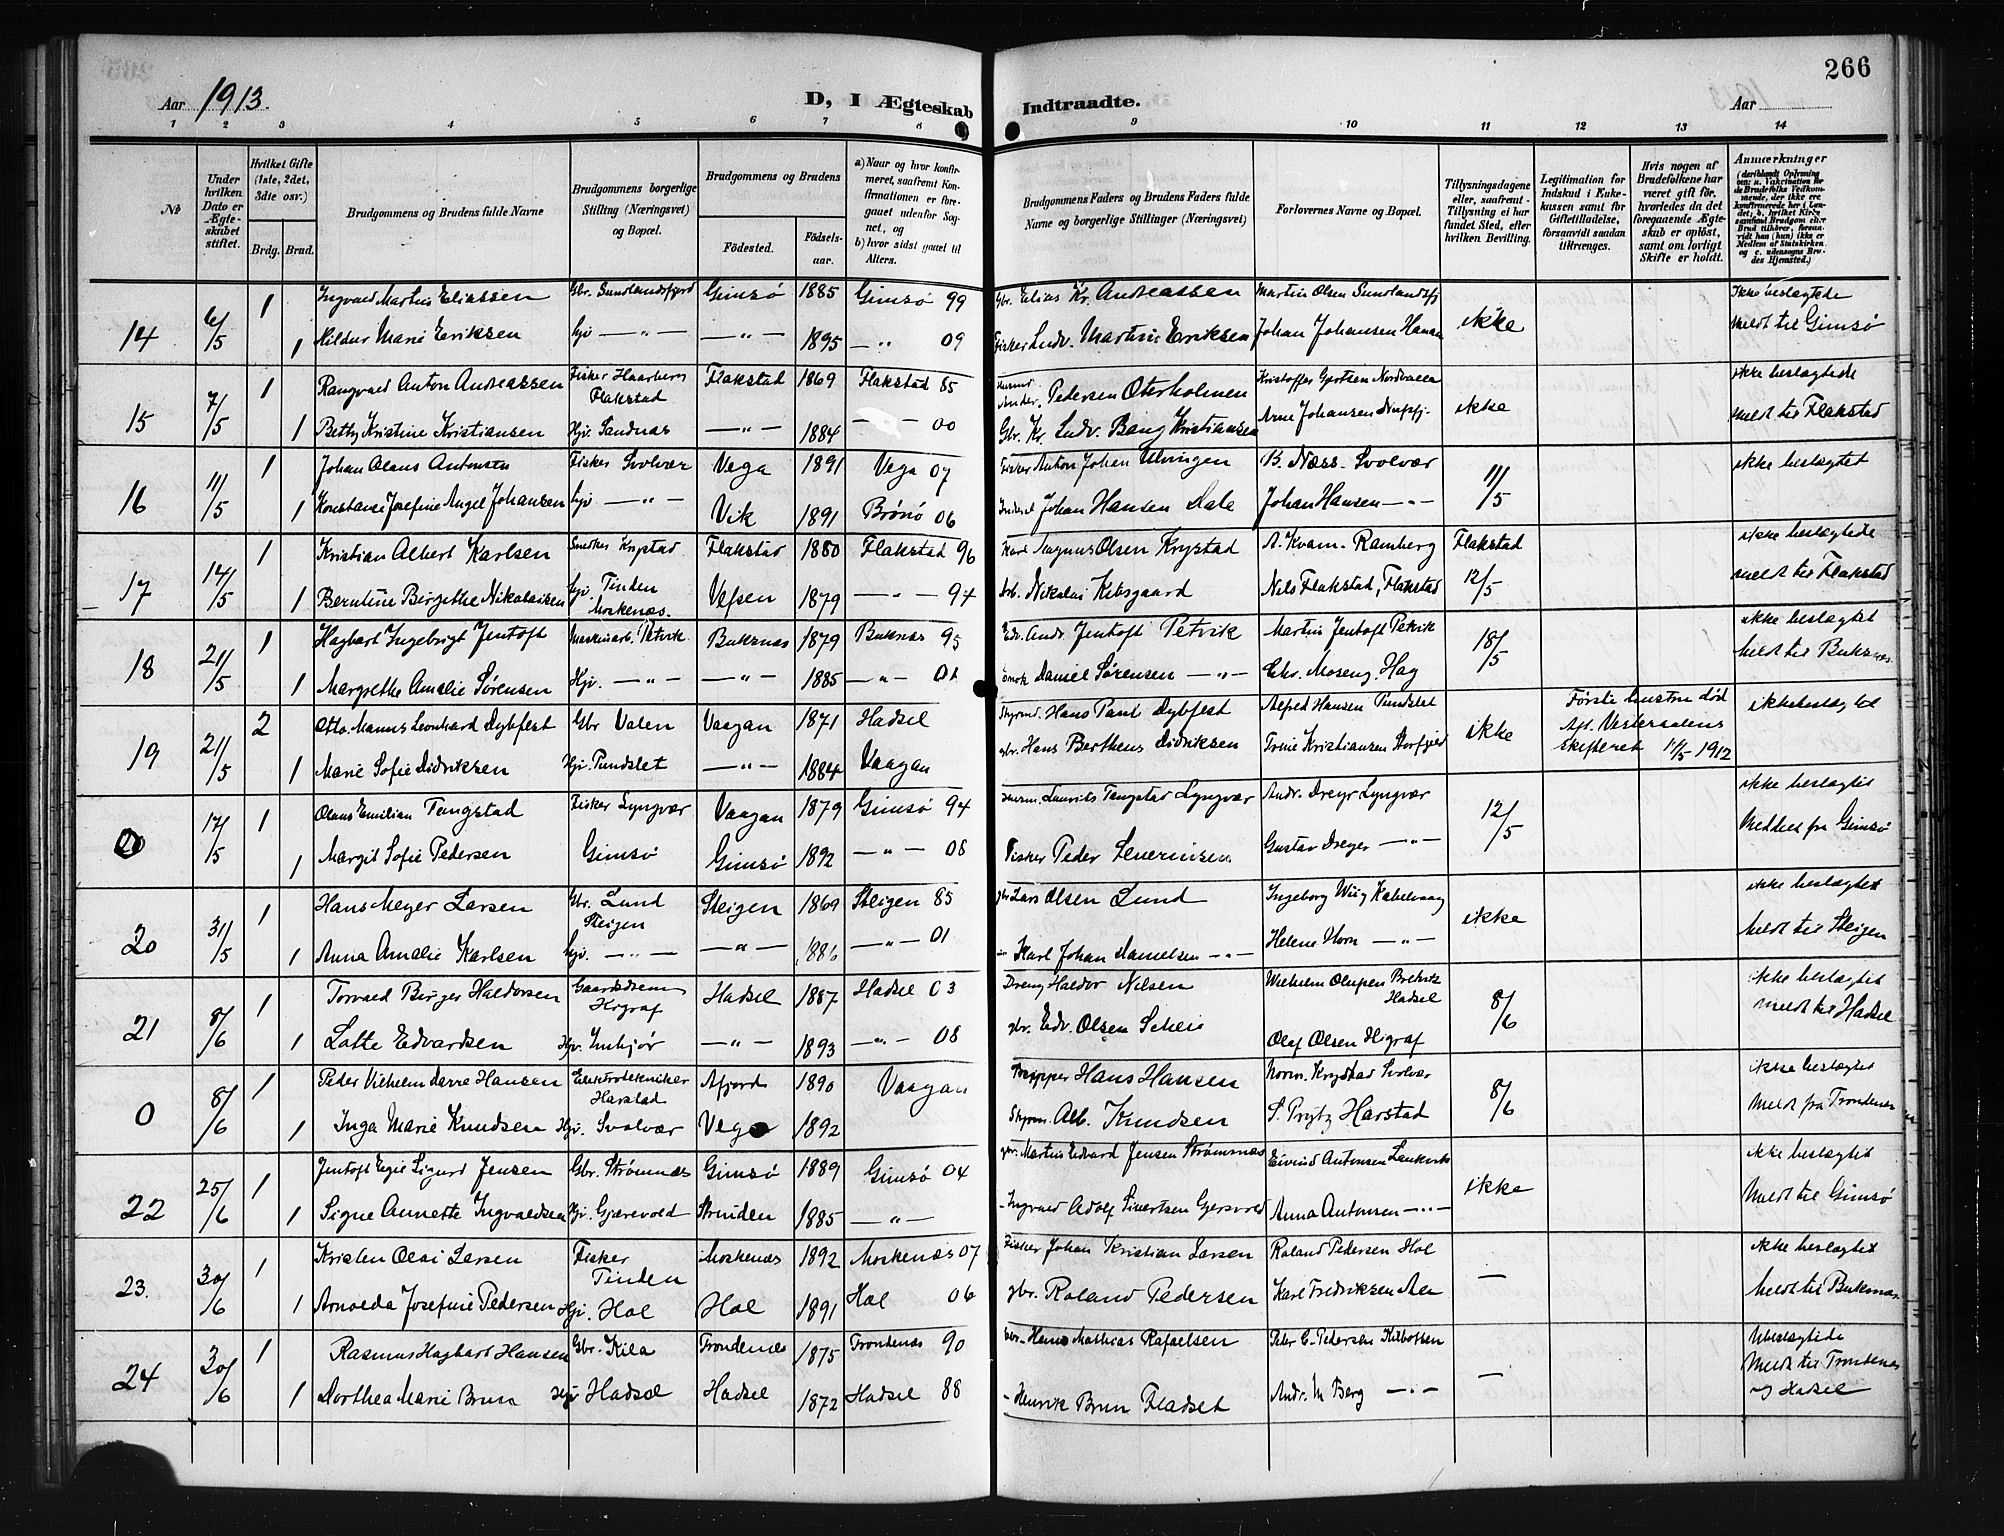 266
Aar 1913.
D, I Ægteskab Indtraadte.
Aar
1 2 3 4 5 6 7 8 9 10 11 12 13 14
№
Under hvilken Dato er Ægteskabet stiftet.
Hvilket Gifte (1ste, 2det, 3die osv.)
Brdg. Brud.
Brudgommens og Brudens fulde Navne
Brudgommens borgerlige Stilling (Næringsvei) og Bopæl.
Brudgommens og Brudens
Fødested.
Fødselsaar.
a) Naar og hvor konfirmeret, saafremt Konfirmationen er foregaaet udenfor Sognet, og
b) hvor sidst gaaet til Alters.
Brudgommens Faders og Brudens Faders fulde Navne og borgerlige Stillinger (Næringsvei)
Forlovernes Navne og Bopæl.
Tillysningsdagene eller, saafremt Tillysning ei har fundet Sted, efter hvilken Bevilling.
Legitimation for Indskud i Enkekassen samt for Giftetilladelse, forsaavidt saadan tiltrænges.
Hvis nogen af Brudefolkene har været gift før, hvorledes da det foregaaende Ægteskab er opløst, samt om lovligt Skifte er holdt.
Anmærkninger
14 6/5 1 Ingvald Martin Eliassen Gbr. Sundlandsfjord Gimsø 1885 Gimsø 99 Gbr. Elias Kr. Andreassen Martin Olsen Sundlandsfj ikke Ikke beslægtede
1 Hildur Marie Eriksen Hjv — " — — " — 1895 — " 09 Fisker Ludv. Martin Eriksen Johan Johansen meldt til Gimsø
15 7/5 1 Rangvald Anton Andreassen Fisker Flakstad Flakstad 1869 Flakstad 85 Pedersen Oterholmen Kristoffer ikke ikke beslægtede
1 Betty Kristine Kristiansen Hjv. Sandnas — " — 1884 — — 00 Gbr. Kr. Ludv. Bang Kristiansen Arne Johansen meldt til Flakstad
16 11/5 1 Johan Olaus Antonsen Fisker Svolvær Vega 1891 Vega 07 Fisker Anton Johan Ulvingen B. Næss. Svolvær 11/5 ikke beslægtet
1 Konstanse Josefine Angel Johansen Hjv — " — Vik 1891 Brønø 06 Johan Hansen Dale Johan Hansen — " —
17 14/5 1 Kristian Albert Karlsen Flakstad 1880 Flakstad 96 Magnus Olsen Krystad A. Kvam. Ramberg Flakstad ikke beslægtede
1 Berntine Birgithe Nikolaisen Hjv. Tinden Moskenæs. Vefsen 1879 — " — 94 Nikolai Kibsgaard Nils Flakstad, Flakstad 12/5 meldt til Flakstad
18 21/5 1 Hagbart Ingebrigt Jentoft Maskinarb. Petvik Buksnas 1879 Buksnas 95 Andr. Jentoft Petvik Martin Jentoft Petvik 18/5 ikke beslægtet
1 Margrethe Amalie Sørensen Hjv. — " — — " — 1885 — " — 01 Daniel Sørensen — " — Chr. Moseng Hag Meldt til Buksnæs
19 21/5 2 Otto Manus Leonhard Dybfest Gbr Valen Vaagan 1871 Hadsel Hans Paul Dybfest Alfred Hansen Pundslet ikke Første hustru død ikke beslægtet
1 Marie Sofie Didriksen Hjv. Pundslet — " — 1884 Vaagan Gbr. Hans Bertheus Didriksen Trine Kristiansen Storfjeld Afs. Vesteraalens
Skifteret 11/5 1912
0 17/5 1 Olaus Emilian Tangstad Fisker Lyngvær Vaagan 1879 Gimsø 94 Laurits Tangstad Lyngvær Andr. Dreyer Lyngvær 12/5 ikke beslægtet
1 Margit Sofie Pedersen Gimsø Gimsø 1892 — " — 08 Fisker Peder Severinsen Gustav Dreyer — " — Meddelt fra Gimsø
20 31/5 1 Hans Meyer Larsen Gbr. Lund Steigen Steigen 1869 Steigen 85 Gbr Lars Olsen Lund Ingeborg Wiig Kabelvaag ikke ikke beslægtet
1 Anna Amalie Karlsen Hjv. — " — — " — 1886 — " — 01 Karl Johan Danielsen — " — Helene Horn — " — Meldt til Steigen
21 8/6 1 Torvald Birger Haldorsen Gaardsdreng Higraf Hadsel 1887 Hadsel 03 Dreng Haldor Nilsen Wilhelm Olufsen Breivik Hadsel 8/6 ikke beslægtet
1 Lotte Edvardsen Hjv. — " — 1893 — " — 08 Gbr. Edv. Olsen Scheie Olaf Olsen Higraf meldt til Hadsel
0 8/6 1 Peder Vilhelm Darre Hansen Elektrotekniker Harstad Afjord 1890 Vaagan Skipper Hans Hansen Norm. Krystad Svolvær 8/6 ikke beslægtet
1 Inga Marie Knudsen Hjv. Svolvær Vega 1892 Styrm. Alb. Knudsen S. Prytz Harstad Meldt fra Trondenes
22 25/6 1 Jentoft Egil Sigurd Jensen Gbr. Strømnæs Gimsø 1889 Gimsø 04 Gbr. Martin Edvard Jensen Strømsnæs Eivind Antonsen ikke ikke beslægtet
1 Signe Annette Ingvaldsen Hjv. Gjærevold 1885 — " — Ingvald Adolf Sivertsen Anna Antonsen — " — Meldt til Gimsø
23. 30/6 1 Kristen Olai Larsen Fisker Tinden Moskenæs 1892 Moskenæs 07 Fisker Johan Kristian Larsen Roland Pedersen Hol — ikke beslægtet
1 Arnolda Josefine Pedersen Hjv. Hol Hol 1891 Hol 06 Gbr. Roland Pedersen Karl Fredriksen Meldt til Buksnæs
24 30/6 1 Rasmus Hagbart Hansen Gbr. Kila Trondenæs 1875 Trondenas 90 Gbr. Hans Mathias Rafaelsen Peder C. Pedersen Kilbotten — Ubeslægtede
1 Dorthea Marie Brun Hjv Hadsel Hadsel 1872 Hadsel 88 — Henrik Brun Fladset Andr. M Berg — " — Meldt til Trondenæs
og Hadsel